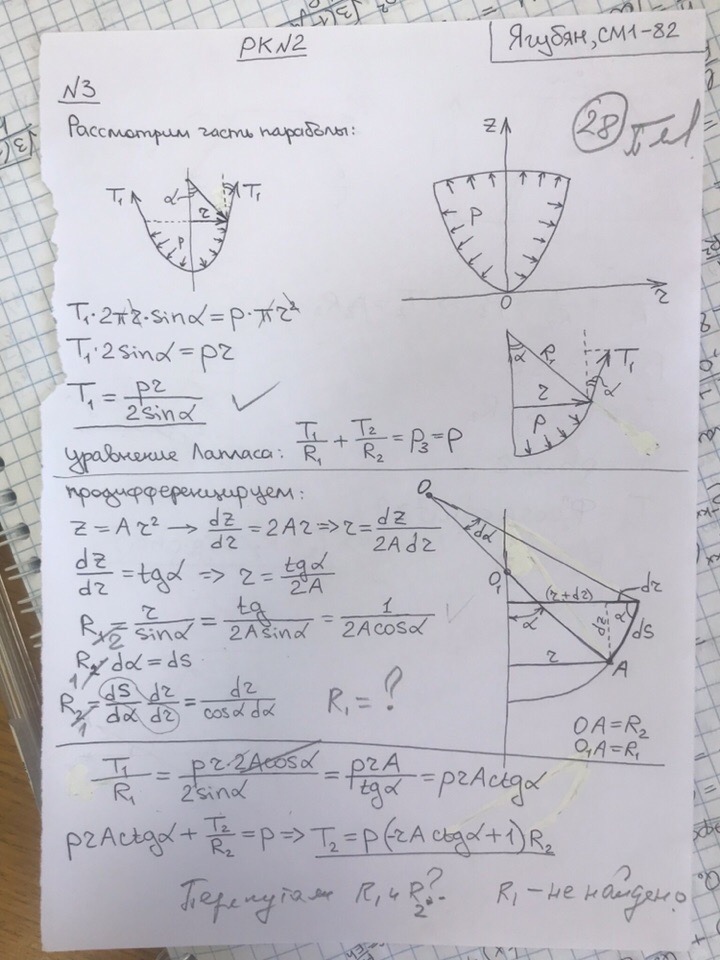 РК№2
Ягубян, СМ1-82
№3
28
Рассмотрим часть параболы:
T₁ α T₁
r
P
z
P
O
r
T₁·2πr·sinα = p·πr²
T₁·2sinα = pr
T₁ = pr/2sinα ✓
α R₁ T₁
r α
P
уравнение Лапласа: T₁/R₁ + T₂/R₂ = P₃ = P
продифференцируем:
z = Ar² → dz/dr = 2Ar ⇒ r = dz/2Adr
dz/dr = tgα ⇒ r = tgα/2A
R₂ = r/sinα = tg/2Asinα = 1/2Acosα
R₁dα = dS
R₁ = dS/dα dr/dr = dr/cosα dα
R₁ = ?
O
dα
O₁
(r+dr) dr
α dz α dS
r A
OA = R₂
O₁A = R₁
T₁/R₁ = pr·2Acosα/2sinα = prA/tgα = prActgα
prActgα + T₂/R₂ = p ⇒ T₂ = p(-rActgα+1)R₂
Перепутал R₁ и R₂? R₁ - не найдено?